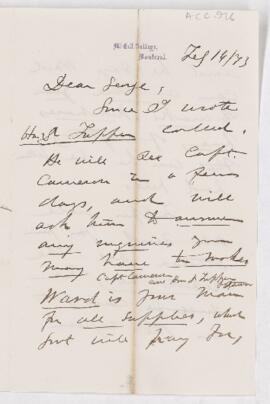 ACC 926
McGill College,
Montreal.
Feb 14/73
Dear George,
Since I wrote
Hon Dr Tupper called.
He will see Capt.
Cameron in a few
days, and will
ask him to answer
any inquiries you
may have to make
Capt Cameron and Dr Tupper
Ward is your man
for all supplies, which
Govt will pay for,